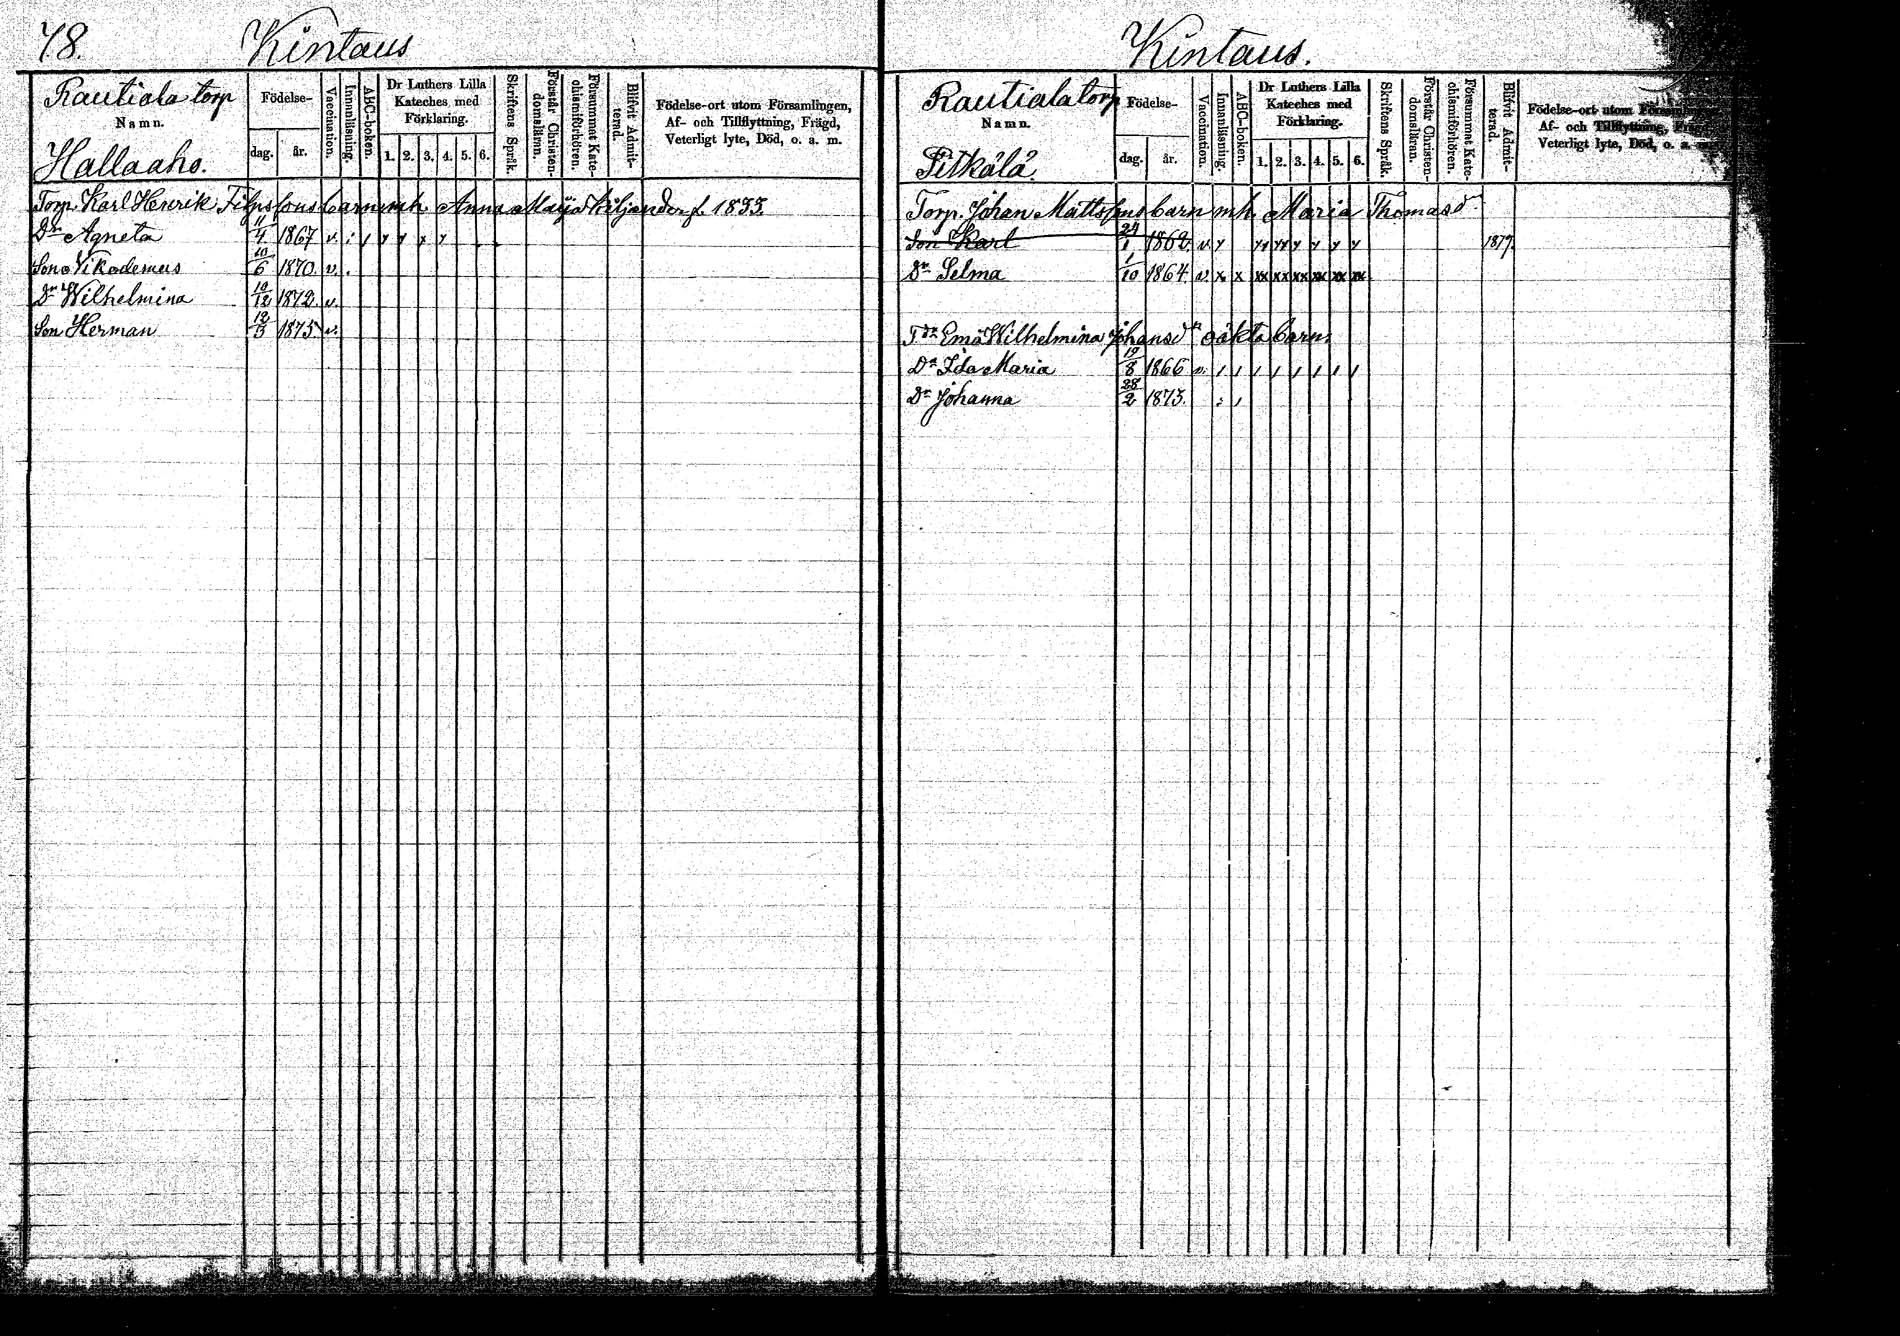 78.
Kintaus
Rautiala torp
Namn.
Hallaaho.
Födelse-
dag. år.
Vaccination.
Innanläsning.
ABC-boken.
Dr Luthers Lilla
Kateches med
Förklaring.
1. 2. 3. 4. 5. 6.
Skriftens Språk.
Förstår Christen-
domsläran.
Försummat Kate-
chismiförhören.
Blifvit Admit-
terad.
Födelse-ort utom Församlingen,
Af- och Tillflyttning, Frägd,
Veterligt lyte, Död, o. a. m.
Torp. Karl Henrik Filpssons barn mh. Anna Maija Kiljander f. 1833.
Dr Agneta 11/4 1867 v.
Son Nikodemus 10/6 1870. v.
Dr Wilhelmina 19/12 1872 v.
Son Herman 12/3 1875 v.
Kintaus.
Rautiala torp
Namn.
Pitkälä.
Födelse-
dag. år.
Vaccination.
Innanläsning.
ABC-boken.
Dr Luthers Lilla
Kateches med
Förklaring.
1. 2. 3. 4. 5. 6.
Skriftens Språk.
Förstår Christen-
domsläran.
Försummat Kate-
chismiförhören.
Blifvit Admit-
terad.
Födelse-ort utom
Af- och Tillflyttning, Frägd,
Veterligt lyte, Död, o. a. m.
Torp. Johan Mattssons barn mh. Maria Thomasd
Son Karl 24/1 1862 v. 1879.
Dr Selma 1/10 1864 v. x x xx xx xx xx xx xx
Emä Wilhelmina Johansd oäkta barn.
Dr Ida Maria 19/8 1866 v.
Dr Johanna 28/2 1873.